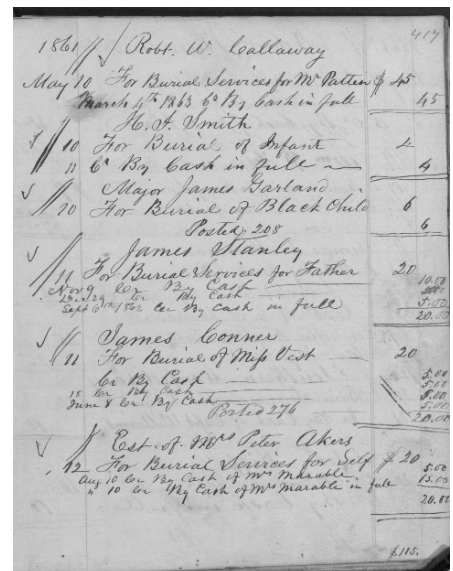 417
1861 Robt. W. Callaway
May 10 For Burial Services for Mr Patten $ 45
March 4th 1863 Cr By Cash in full 45
H. I. Smith
10 For Burial of Infant 4
11 Cr By Cash in full 4
Major James Garland
10 For Burial of Black Child 6
Posted 208 6
James Stanley
11 For Burial Services for Father 20
Nov 9 Cr By Cash 10.00
29 Cr By Cash
Sept 6th 1862 Cr By Cash in full 5.00
20.00
James Conner
11 For Burial of Miss Vest 20
Cr By Cash 5.00
15 Cr By Cash 5.00
June 8 Cr By Cash 5.00
5.00
Posted 276 20.00
Est of Mrs Peter Akers
12 For Burial Services for Self $ 20
Aug 10 Cr By Cash of Mrs Marable 5.00
" 10 Cr By Cash of Mrs Marable in full 15.00
20.00
$115.